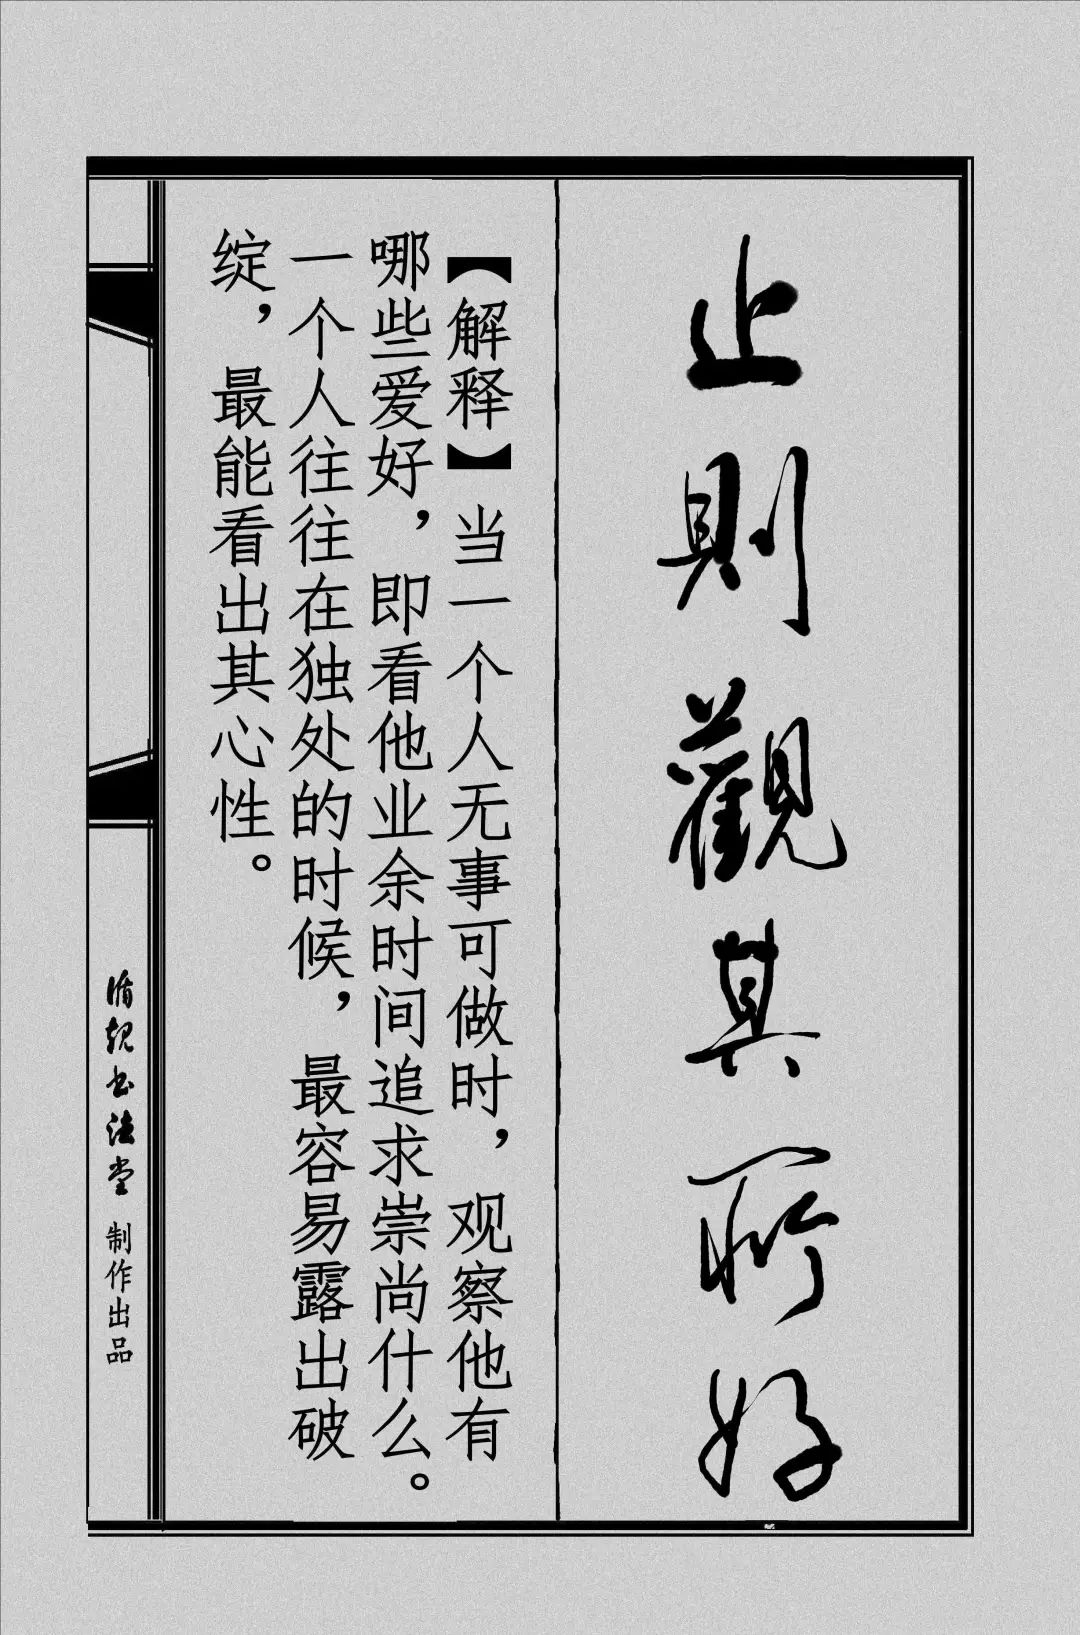 止則觀其所好
【解释】当一个人无事可做时，观察他有
哪些爱好，即看他业余时间追求崇尚什么。
一个人往往在独处的时候，最容易露出破
绽，最能看出其心性。
循规书法堂 制作出品